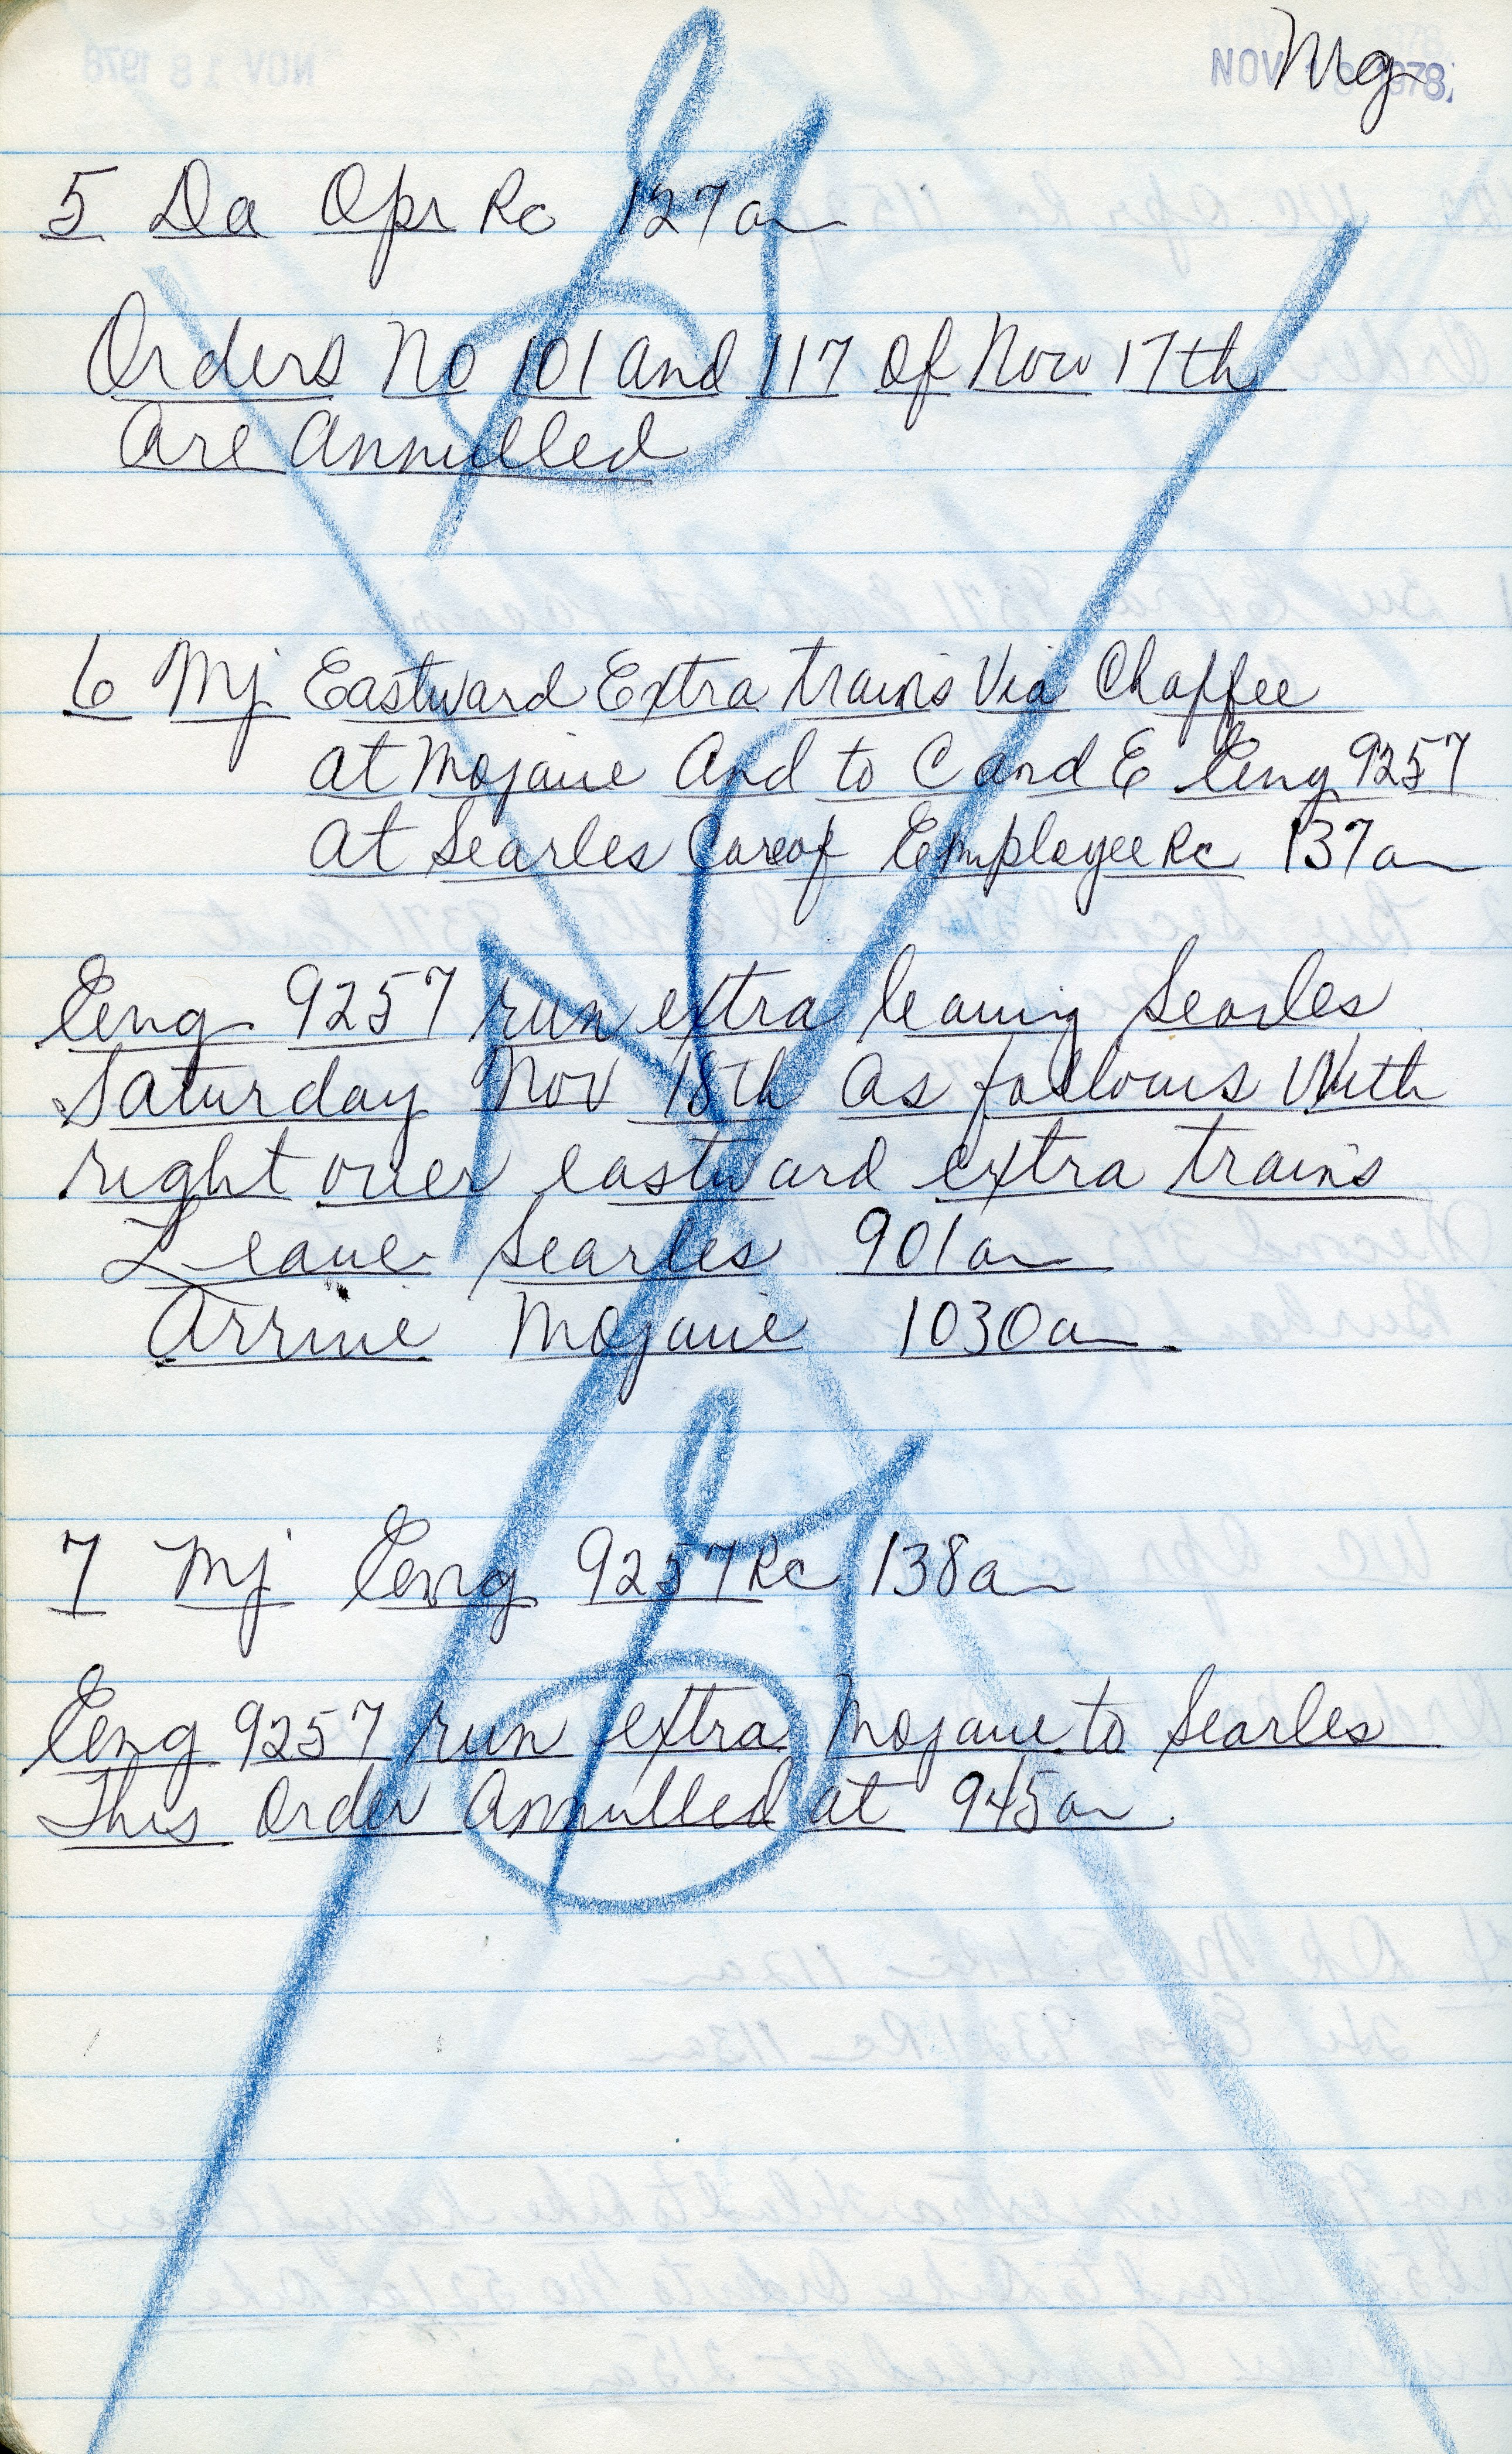 NOV 18 1978
Mg
5 Da Opr Rc 127am
Orders No 101 and 117 of Nov 17th
Are Annulled
6 Mj Eastward Extra trains Via Chaffee
at Mojave And to C and E Eng 9257
at Searles Careof Employee Rc 137am
Eng 9257 run extra leaving Searles
Saturday Nov 18th As follows With
right over eastward extra trains
Leave Searles 901am
Arrive Mojave 1030am
7 Mj Eng 9257 Rc 138am
Eng 9257 run extra Mojave to Searles
This Order Annulled at 945am